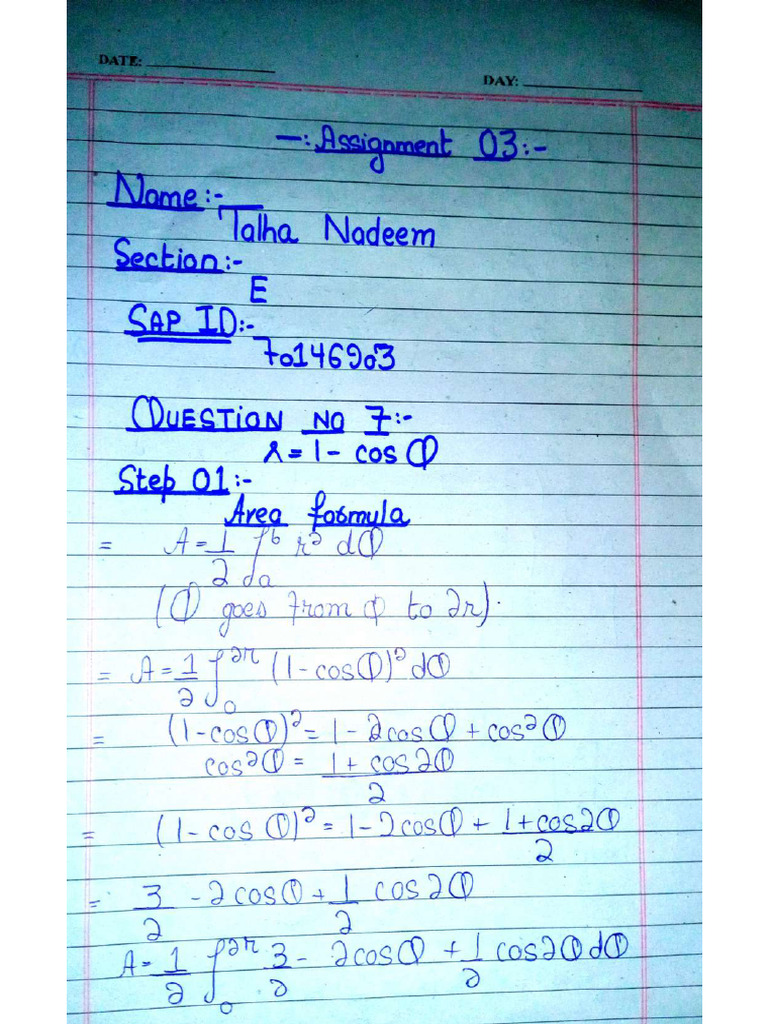 DATE: ____________
DAY: ____________
-: Assignment 03:-
Name:-
Talha Nadeem
Section:-
E
SAP ID:-
70146903
QUESTION NO 7:-
r = 1 - cos θ
Step 01:-
Area formula
= A = 1/2 ∫_a^b r² dθ
(θ goes from 0 to 2π).
= A = 1/2 ∫_0^2π (1 - cos θ)² dθ
= (1 - cos θ)² = 1 - 2cos θ + cos² θ
cos² θ = (1 + cos 2θ)/2
= (1 - cos θ)² = 1 - 2cos θ + (1 + cos 2θ)/2
= 3/2 - 2cos θ + 1/2 cos 2θ
A = 1/2 ∫_0^2π 3/2 - 2cos θ + 1/2 cos 2θ dθ